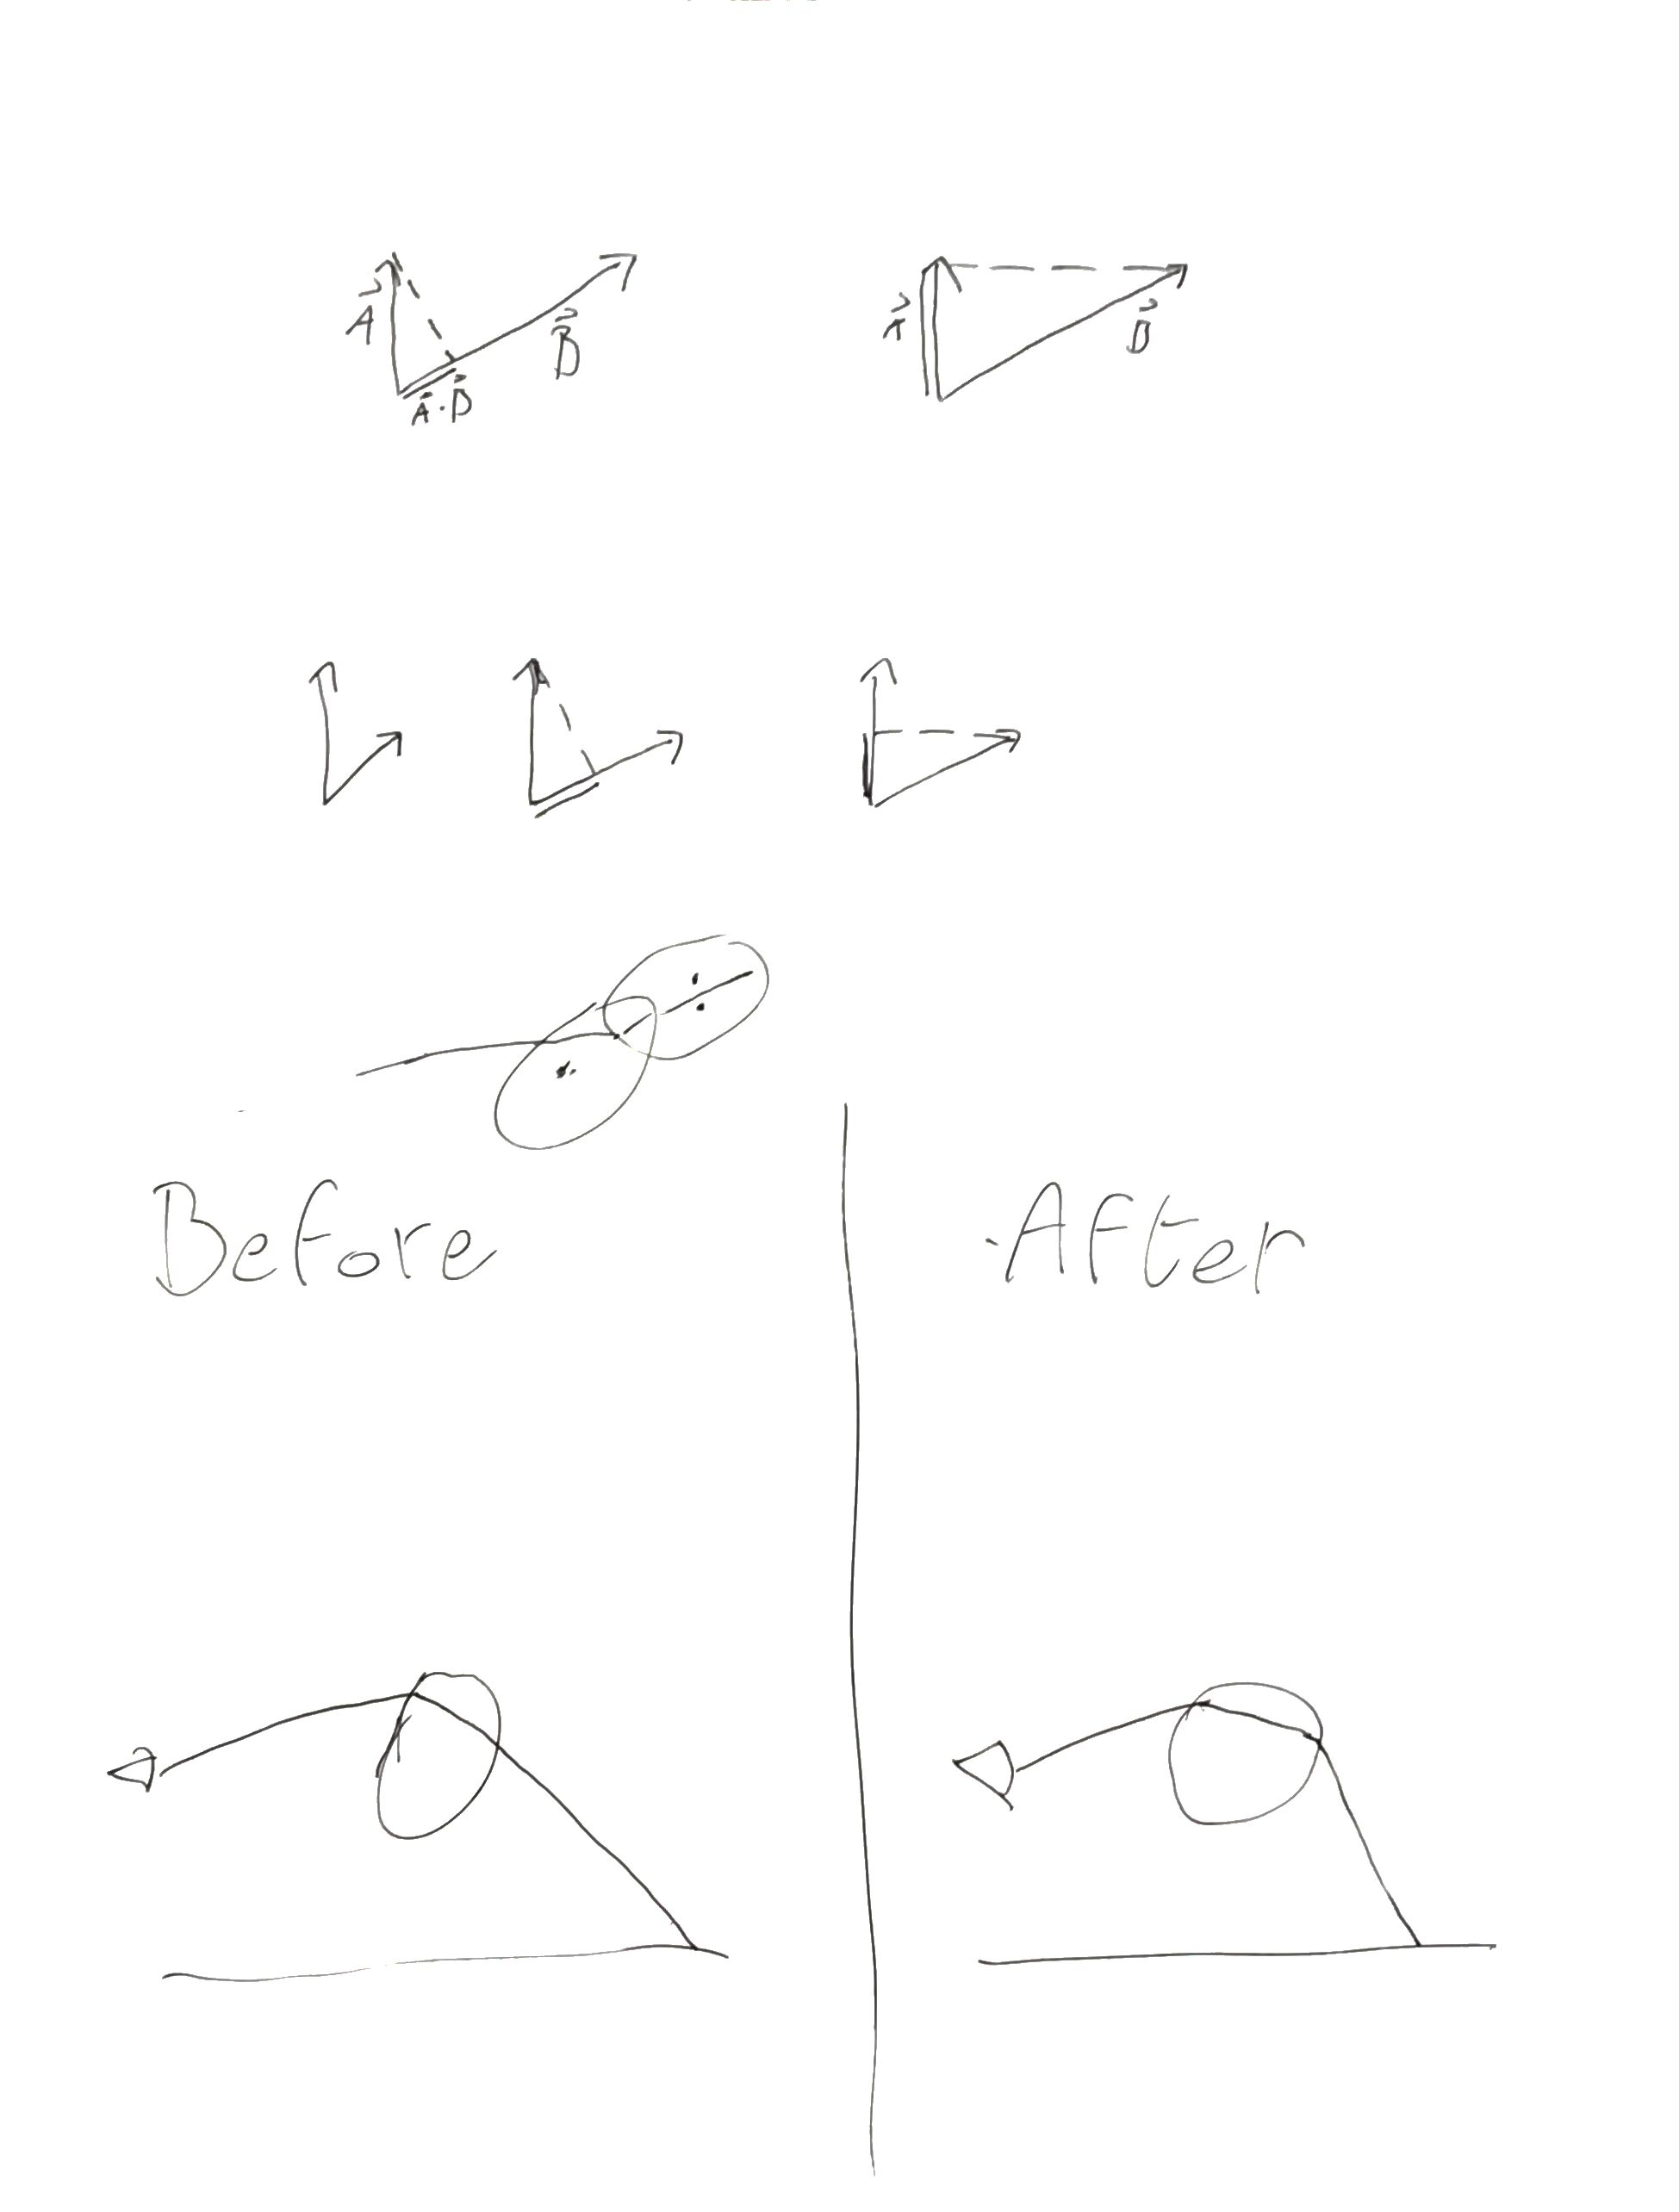 A⃗ B⃗ A⃗ B⃗
A⃗·B⃗
Before After